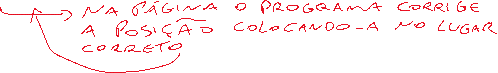 NA PÁGINA O PROGRAMA CORRIGE
A POSIÇÃO COLOCANDO-A NO LUGAR
CORRETO